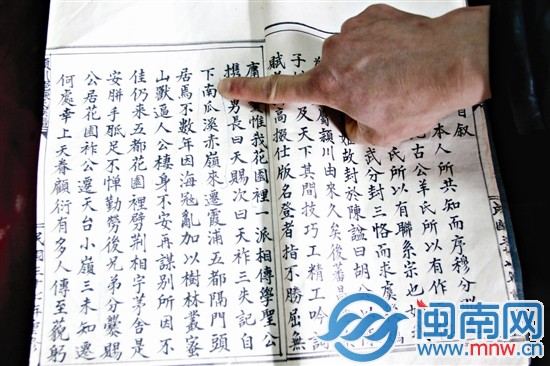 自叙
本人所共知而序穆分
古公羊氏所以有作
氏所以有聯系宗也古
武分封三恪而求虞
姓故封於陳諡曰胡公
屬潁川由來久矣後蕃
子 及天下其間技巧工精工吟詞
賦 高掇仕版名登者指不勝屈無
庸 惟我花園裡一派相傳學聖公
攜 男長曰天賜次曰天祚三失記自
下南瓜溪赤嶺來遷霞浦五都隔門頭
居焉不數年因海冠亂加以樹林叢蜜
山獸逼人公棲身不安再謀別所因不
佳仍來五都花園裡劈荆相宇茅舍是
安胼手胝足不憚勤勞後兄弟分爨賜
公居花園祚公遷天台小嶺三未知遷
何處幸上天眷顧衍有多人傳至藐躬
闽南网
www.mnw.cn